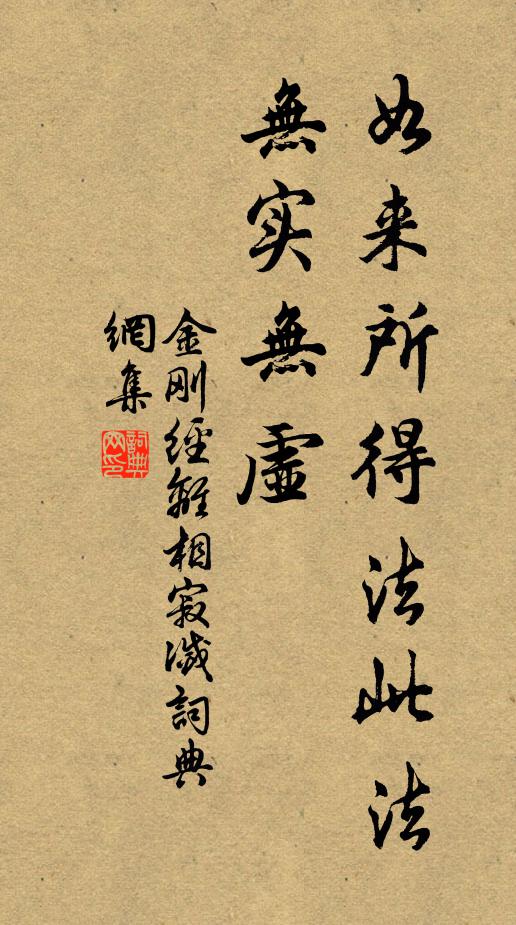 如来所得法此法
無实無虛
金刚經離相寂滅詞典
網集
詞典網印